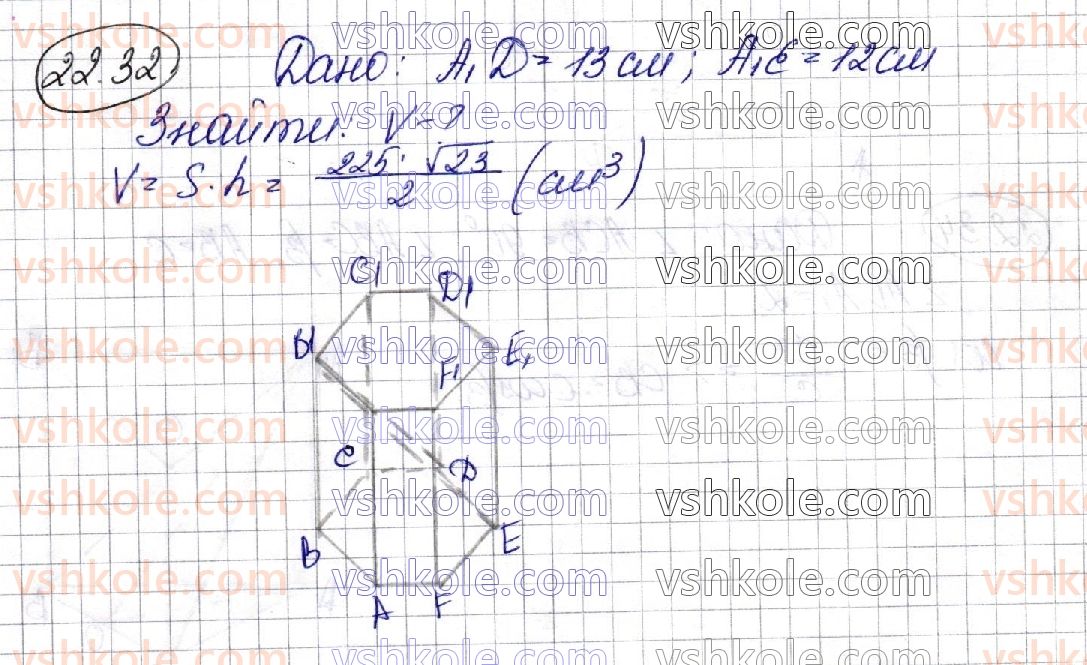 22.32 Дано: A₁D = 13 см; A₁E = 12 см
Знайти: V - ?
V = S · h = 225 · √23 / 2 (см³)
C₁ D₁
B₁ E₁
F₁
C D
B E
A F
vshkole.com